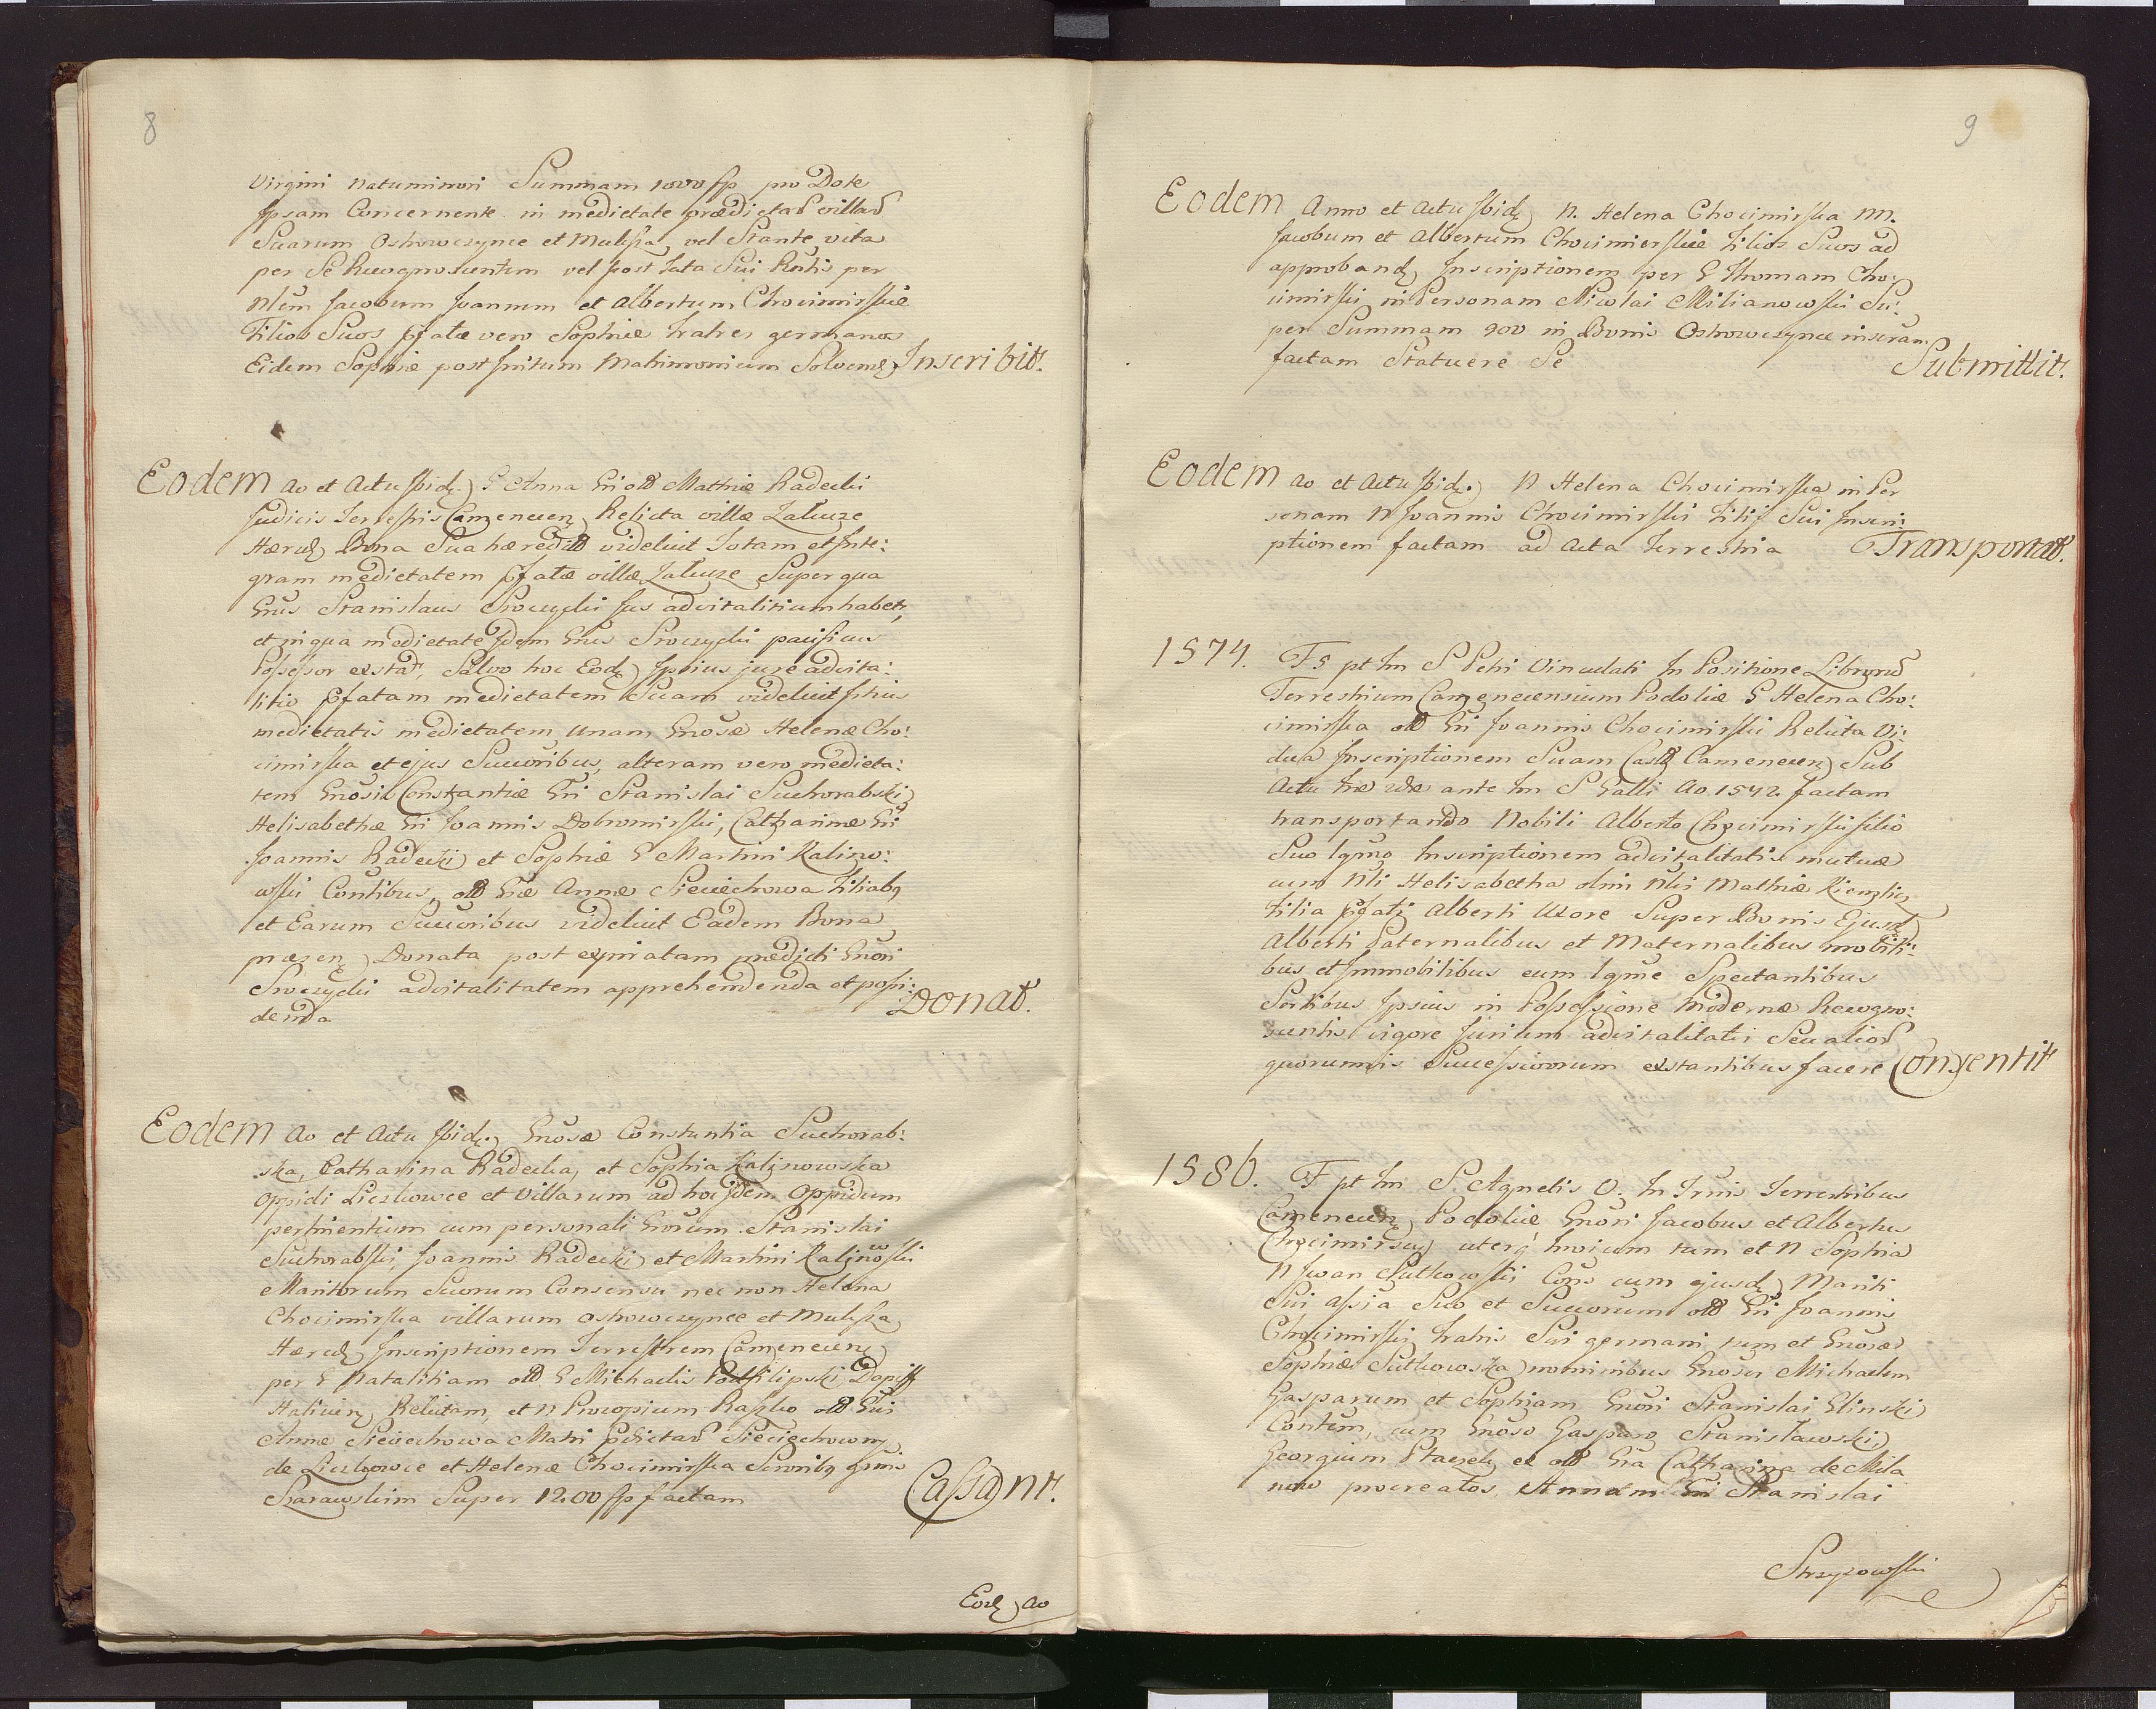 8
Virgini natuminori Summam 1000 fp pro Dote
Ipsam Concernente in medietate prædictar villar
Suarum Ostrowczynce et Muksza, vel Stante vita
per Se Recognoscentem vel post fata Sui Rntis per
Nlem Jacobum Joannem et Albertum Chocimirskie
Filios Suos pfatæ vero Sophiæ Fratres germanos
Eidem Sophiæ post finitum Matrimonium Solvend Inscribit.
Eodem Ao et Actu Ibid. G Anna Gri olim Mathiæ Radecki
Judicis Terrestris Camenecen Relicta villæ Zalucze
Hæred Bona Sua hæredit videlicit Totam et Inte:
gram medietatem pfatæ villæ Zalucze Super qua
Grus Stanislaus Sroczycki Jus advitalitium habet,
et in qua medietate Idem Grus Sroczycki pacificus
Possessor exstat, Salvo hoc Eod Ipsius jure advita:
litio pfatam medietatem Suam videlicit Ipsius
medietatis medietatem unam Grosæ Helenæ Cho:
cimirska et ejus Successoribus, alteram vero medieta:
tem Grosis Constantiæ Gri Stanislai Suchorabski,
Helisabethæ Gri Joannis Dobromirski, Catharinæ Gri
Joannis Radecki et Sophiæ G Martini Kalino:
wski Contibus, olim Græ Annæ Sieciechowa Filiabq
et Earum Successoribus videlicit Eadem Bona
præsen Donata post expiratam prædicti Grosi
Sroczycki advitalitatem apprehendenda et possi:
denda Donat.
Eodem Ao et Actu Ibid. Grosæ Constantia Suchorab:
ska, Catharina Radecka, et Sophia Kalinowska
Oppidi Liczkowce et Villarum ad hoc Idem Oppidum
pertinentium cum personali Grorum Stanislai
Suchorabski, Joannis Radecki et Martini Kalinowski
Maritorum Suorum Consensu nec non Helena
Chocimirska villarum Ostrowczynce et Muksza
Hæred Inscriptionem Terrestrem Camenecen
per G Natalitiam olim G Michaelis Podfilipski Dapiff
Halicien Relictam, et N Procopium Raszko olim Gri
Annæ Sieciechowa Matri pdictar Sieciechowny
de Liczkowce et Helenæ Chocimirska Sororibq grnis
Szarawskim Super 1200 fp factam Cassant.
Eod Ao
9
Eodem Anno et Actu Ibid N. Helena Chocimirska NN.
Jacobum et Albertum Chocimierskie Filios Suos ad
approband Inscriptionem per G Thomam Cho:
cimirski in Personam Nicolai Milianowski Su:
per Summam 900 in Bonis Ostrowczynce inscram
factam Statuere Se Submittit.
Eodem Ao et Actu Ibid. N Helena Chocimirska in Per
sonam N Joannis Chocimirski Filij Sui Inscri:
ptionem factam ad Acta Terrestria Transportat.
1574. F5 pt fm S Petri Vinculati In Positione Libror
Terrestrium Camenecensium Podoliæ G Helena Cho:
cimirska olim Gri Joannis Chocimirski Relicta Vi:
dua Inscriptionem Suam Castr Camenecen Sub
Actu fræ 2dæ ante fm S Galli Ao 1542 factam
transportando Nobili Alberto Chocimirski filio
Suo lgmo Inscriptionem advitalitatis mutuæ
cum Nli Helisabetha olim Nlis Mathiæ
filia pfati Alberti Uxore Super Bonis Ejusd
Alberti Paternalibus et Maternalibus mobili:
bus et Immobilibus eum lgme Spectantibus
Sortibus Ipsius in Possessione modernæ Recogno:
scentis vigore Jurium advitalitatis Seu alior
quorumvis Successivorum exstantibus facere Consentit
1586. F pt fm S. Agnetis V. In Trmis Terrestribus
Camenecen Podoliæ Grosi Jacobus et Albertus
Chocimirscy uterq suo cum tum et N Sophia
N Iwan Sutkowski Cons cum ejusd Mariti
Sui assia Suo et Successorum olim Gri Joannis
Chocimirski, Fratris Sui germani tum et Grosæ
Sophiæ Sutkowska nominibus Grosos Michaelem
Gasparum et Sophiam Grosi Stanislai Glinski
Contem, cum Groso Gasparo Stanislawski,
Georgium Ptaszek ex olim Gra Catharina de Mila
now procreatos, Annam Gri Stanislai
Strzyzowski